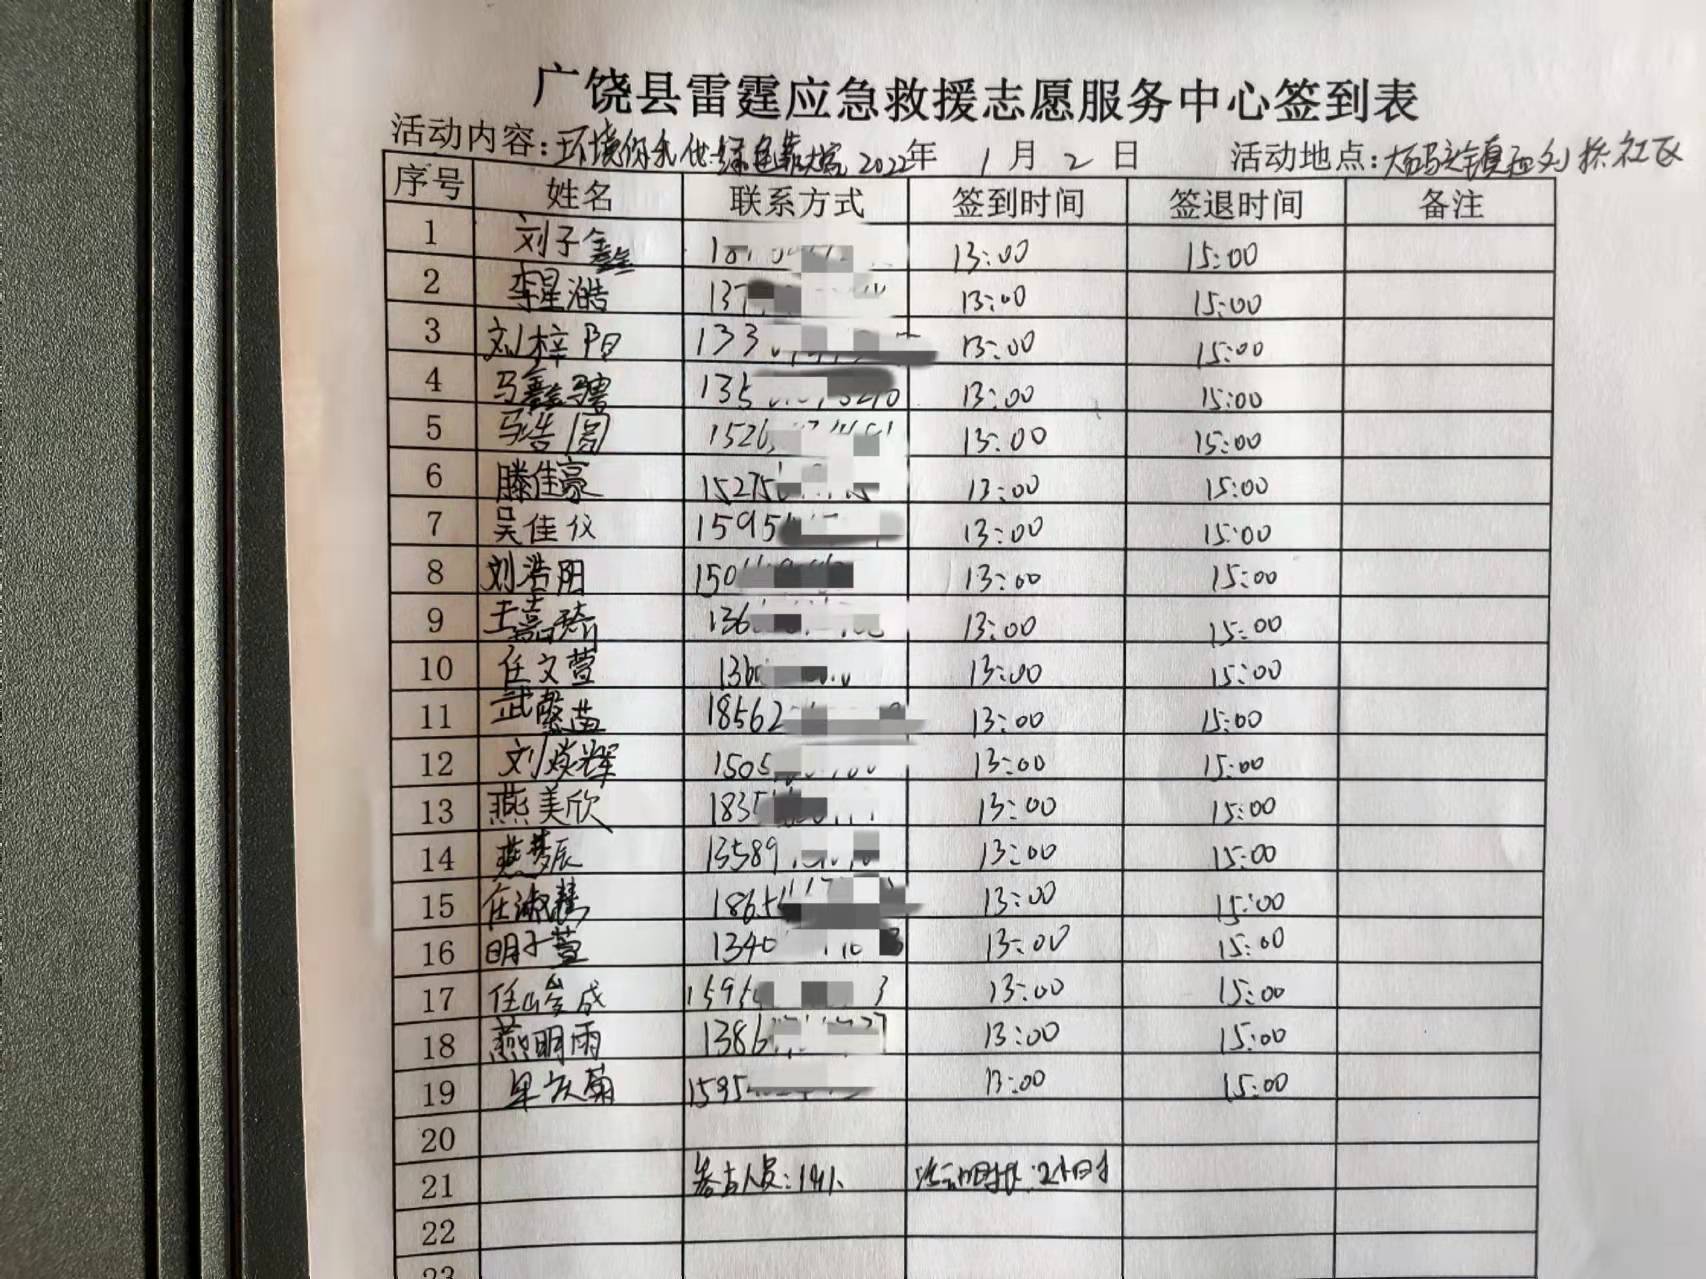 广饶县雷霆应急救援志愿服务中心签到表
活动内容:环境你我他 绿色靠大家 2022年 1月2日 活动地点:大码头镇 社区
序号 姓名 联系方式 签到时间 签退时间 备注
1 刘子鑫 13:00 15:00
2 李星澔 13:00 15:00
3 刘梓阳 133 13:00 15:00
4 马鑫骋 135 13:00 15:00
5 马浩圆 1526 13:00 15:00
6 滕佳豪 15275 13:00 15:00
7 吴佳仪 1595 13:00 15:00
8 刘浩阳 150 13:00 15:00
9 王嘉琦 136 13:00 15:00
10 任文萱 136 13:00 15:00
11 武馨苗 18562 13:00 15:00
12 刘焱辉 1505 13:00 15:00
13 燕美欣 1835 13:00 15:00
14 燕梦辰 13589 13:00 15:00
15 任淑慧 186 13:00 15:00
16 明子萱 1340 13:00 15:00
17 任 成 1595 13:00 15:00
18 燕明雨 1386 13:00 15:00
19 1595 13:00 15:00
20
21 参与人员:19人 活动时长:2小时
22
23